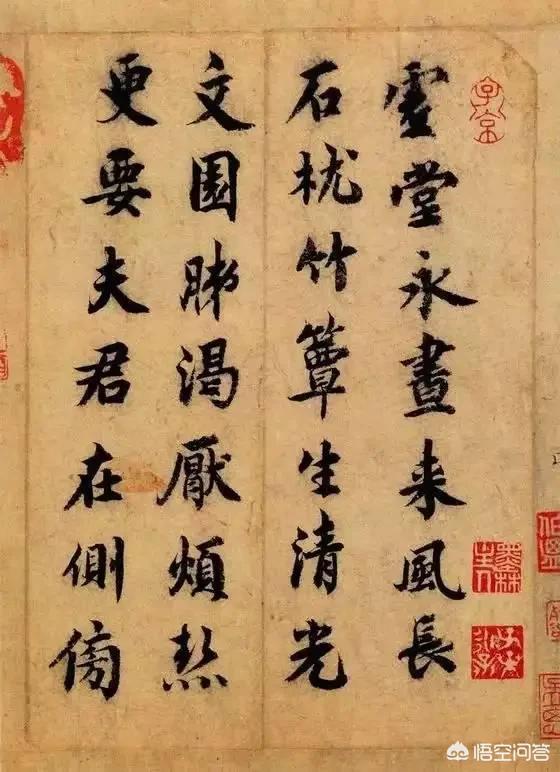 子京
虛堂永晝来風長
石枕竹簟生清光
文園肺渴厭煩熱
更要夫君在側傍
悟空问答